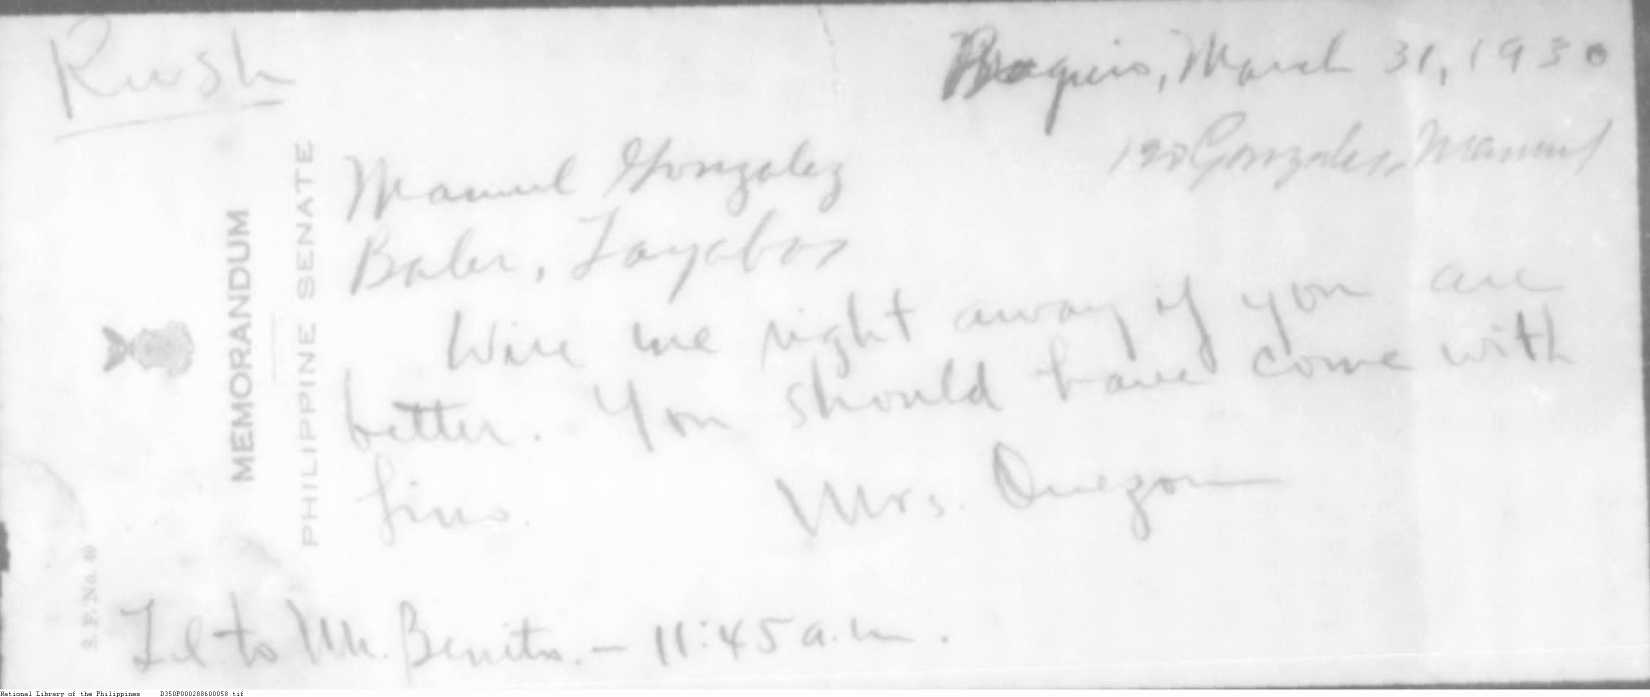 Rush
Baguio, March 31, 1930
190 Gonzalez, Manuel
MEMORANDUM
PHILIPPINE SENATE
S. P. No. 8
Manuel Gonzalez
Baler, Tayabas
Wire me right away if you are
better. You should have come with
Lino.
Mrs. Quezon
Tel to Mr. Benito. — 11:45 a.m.
National Library of the Philippines D350P000288600058.tif